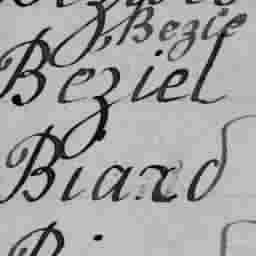 , Bezie
Beziel
Biard